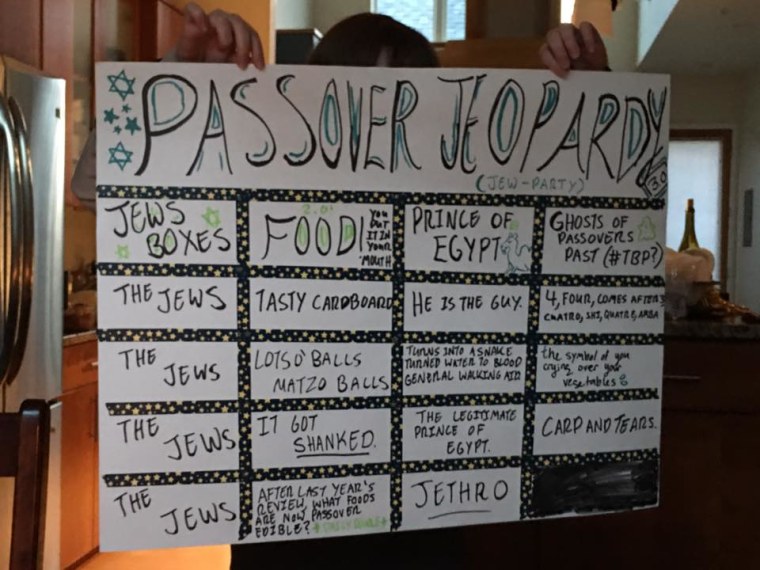 PASSOVER JEOPARDY
(JEW-PARTY)
3.0
JEWS
BOXES
2.0!
FOOD!
YOU
PUT
IT IN
YOUR
MOUTH
PRINCE OF
EGYPT
GHOSTS OF
PASSOVERS
PAST (#TBP?)
THE JEWS
TASTY CARDBOARD
HE IS THE GUY.
4, FOUR, COMES AFTER 3
CUATRO, QUATRE, ARBA
THE
JEWS
LOTS O' BALLS
MATZO BALLS
TURNS INTO A SNAKE
TURNED WATER TO BLOOD
GENERAL WALKING AID
the symbol of you
crying over your
vegetables
THE
JEWS
IT GOT
SHANKED.
THE LEGITIMATE
PRINCE OF
EGYPT.
CARP AND TEARS.
THE
JEWS
AFTER LAST YEAR'S
REVIEW, WHAT FOODS
ARE NOW PASSOVER
EDIBLE? DAILY DOUBLE
JETHRO